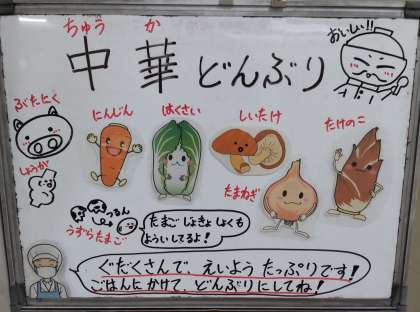 ちゅうか
中華どんぶり
おいしい!!
ぶたにく
にんじん
はくさい
しいたけ
たけのこ
しょうが
たまねぎ
つるん
うずらたまご
たまごじょきょしょくも
よういしてるよ!
ぐだくさんで、えいようたっぷりです!
ごはんにかけて、どんぶりにしてね!